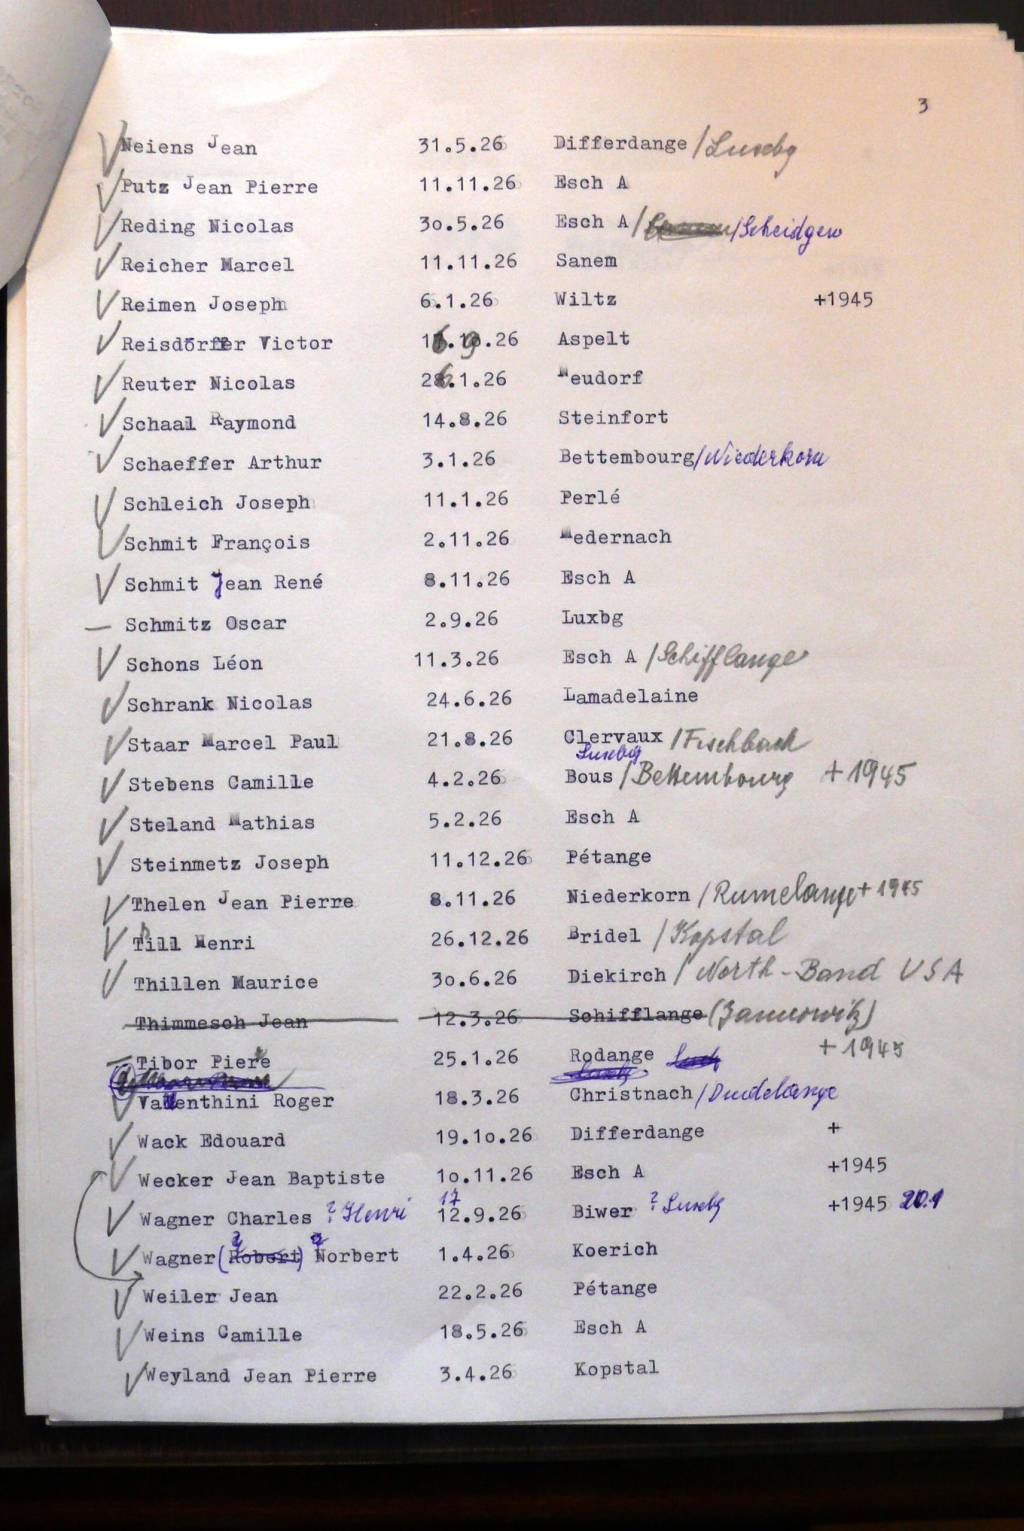 3
Neiens Jean 31.5.26 Differdange /Luxbg
Putz Jean Pierre 11.11.26 Esch A
Reding Nicolas 3o.5.26 Esch A/ /Scheidgen
Reicher Marcel 11.11.26 Sanem
Reimen Joseph 6.1.26 Wiltz +1945
Reisdörffer Victor 16.9.26 Aspelt
Reuter Nicolas 26.1.26 Neudorf
Schaal Raymond 14.8.26 Steinfort
Schaeffer Arthur 3.1.26 Bettembourg/Niederkorn
Schleich Joseph 11.1.26 Perlé
Schmit François 2.11.26 Medernach
Schmit Jean René 8.11.26 Esch A
— Schmitz Oscar 2.9.26 Luxbg
Schons Léon 11.3.26 Esch A /Schifflange
Schrank Nicolas 24.6.26 Lamadelaine
Staar Marcel Paul 21.8.26 Clervaux /Fischbach
Luxbg
Stebens Camille 4.2.26 Bous /Bettembourg +1945
Steland Mathias 5.2.26 Esch A
Steinmetz Joseph 11.12.26 Pétange
Thelen Jean Pierre 8.11.26 Niederkorn /Rumelange +1945
Till Henri 26.12.26 Bridel /Kopstal
Thillen Maurice 3o.6.26 Diekirch / North-Band USA
Thimmesch Jean 12.3.26 Schifflange
+1945
Tibor Piere 25.1.26 Rodange
Valenthini Roger 18.3.26 Christnach /Dudelange
Wack Edouard 19.1o.26 Differdange +
Wecker Jean Baptiste 1o.11.26 Esch A +1945
17
Wagner Charles ? Henri 12.9.26 Biwer ? Luxbg +1945 20.1
Wagner (Robert) Norbert 1.4.26 Koerich
Weiler Jean 22.2.26 Pétange
Weins Camille 18.5.26 Esch A
Weyland Jean Pierre 3.4.26 Kopstal